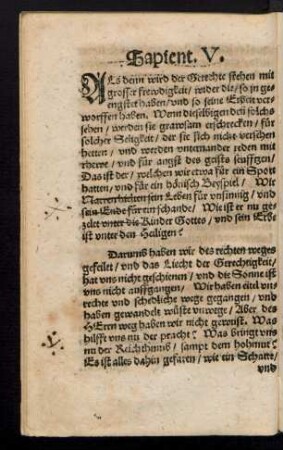 Sapient. V.
Als denn wird der Gerechte stehen mit
grosser frewdigkeit / wider die / so jn ge-
engstet haben / vnd so seine Erbeit ver-
worffen haben. Wenn dieselbigen denn solchs
sehen / werden sie grawsam erschrecken / für
solcher Seligkeit / der sie sich nicht versehen
hetten / vnd werden unternander reden mit
rhewe / vnd für angst des geists seufftzen /
Das ist der / welchen wir etwa für ein Spott
hatten / vnd für ein hönisch Beyspiel / Wir
Narren hielten sein Leben für vnsinnig / vnd
sein Ende für ein schande / Wie ist er nu ge-
zelet vnter die Kinder Gottes / vnd sein Erbe
ist vnter den Heiligen?
Darumb haben wir des rechten weges
gefeilet / vnd das Liecht der Gerechtigkeit /
hat vns nicht geschienen / vnd die Sonne ist
vns nicht auffgangen / Wir haben eitel vn-
rechte vnd schedliche wege gegangen / vnd
haben gewandelt wüste vnwege / Aber des
HErrn weg haben wir nicht gewust. Was
hilfft vns nu der pracht? Was bringt vns
nu der Reichthumb / sampt dem hohmut?
Es ist alles dahin gefaren / wie ein Schatte /
vnd